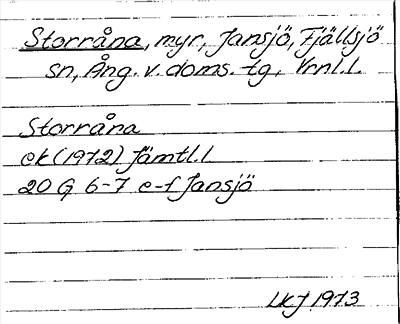 Storråna, myr, Jansjö, Fjällsjö
sn, Ång. v. doms. tg, Vrnl.l.
Storråna
ek (1972) Jämtl.l
20 G 6-7 e-f Jansjö
LKJ 1973